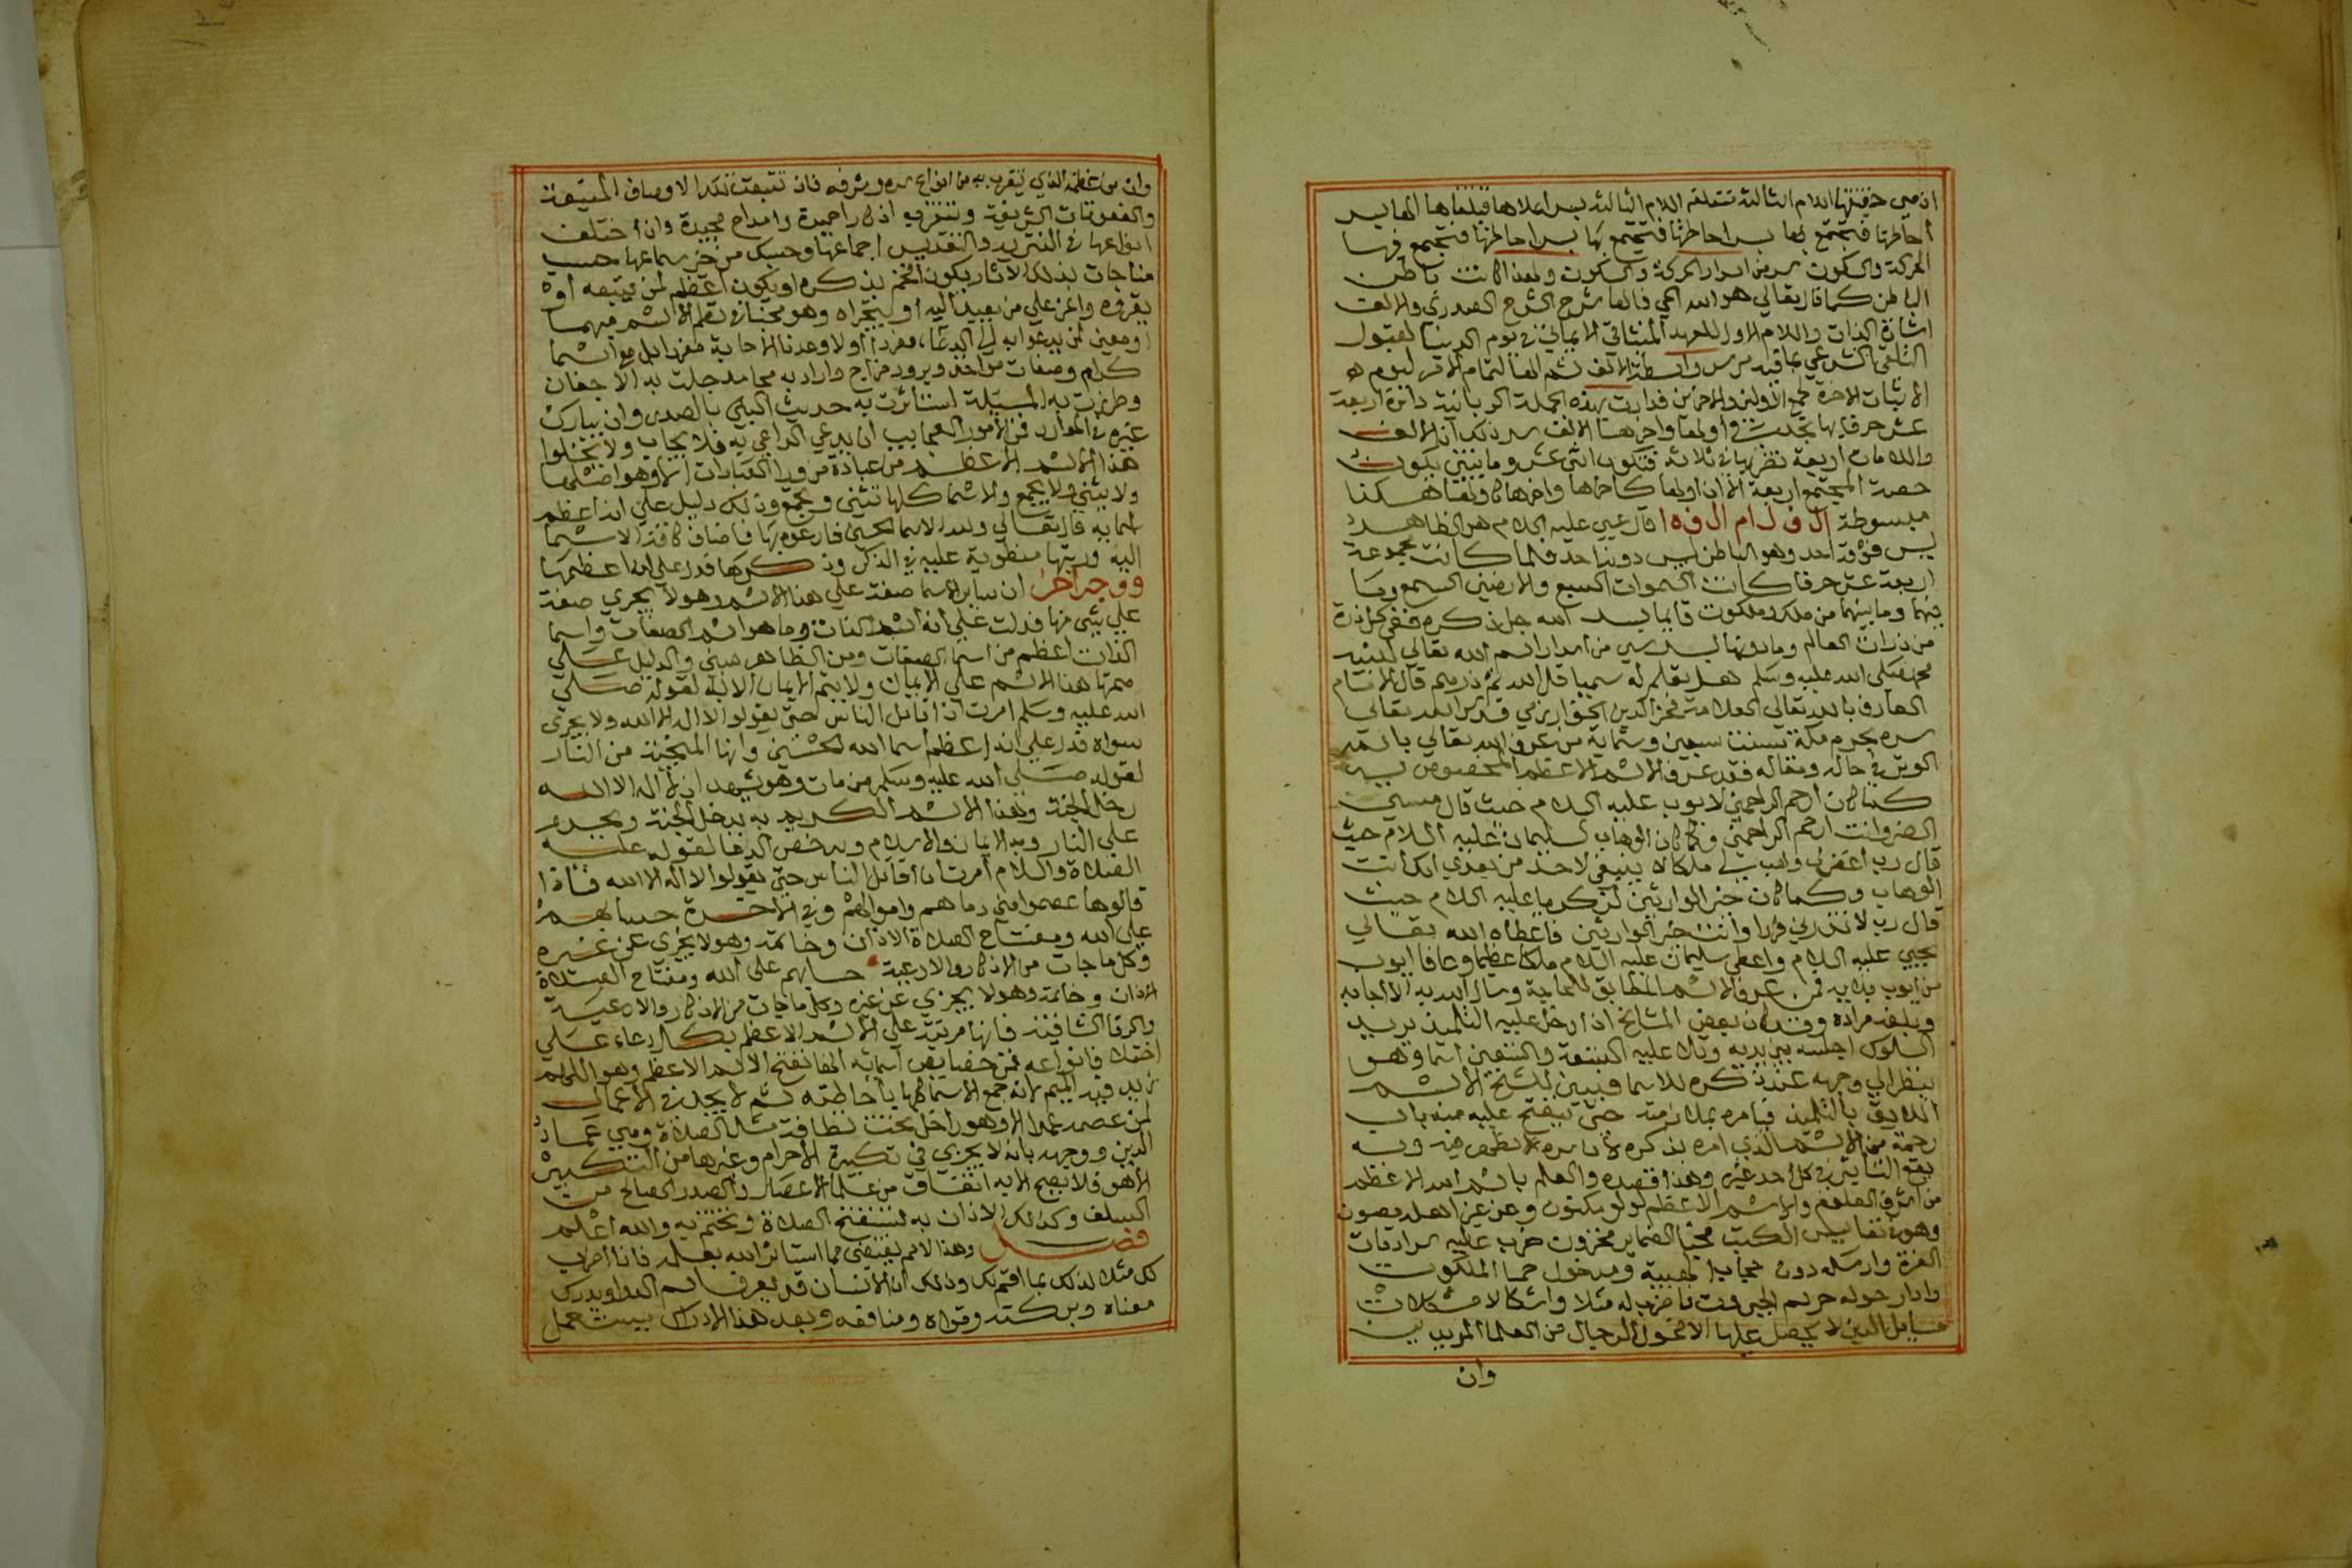 ان هي حقيقتها اللام الثالثة تتعلقه اللام الثالثة بسر اعلاها فبلغها الها بسر
احاطتها فتجتمع لها بسر احاطتها فتجتمع بها بسر احاطتها فتجتمع فيها
الحركة والسكون سر من اسرار الحركة والسكون ولهذا كانت باطن
الباطن كما قال تعالى هو الله الحي فالها شرح الشرح الصدري والالف
اشارة الذات واللام الاول للعهد الميثاقي الايماني في يوم الدنيا لقبول
التلقي الشرعي بما قيد من سر واسطة الالف ثم الها لتمام الامر ليوم
الاثبات الاخرة لجمع الاولين والاخرين فدارت بهذه الجملة الربانية دائرة اربعة
عشر حرفا بها تحدث في اولها واخرها الالف سر ذلك ان الالف
واللامات اربعة نضربها في ثلاثة فتكون اثني عشر وما بينين يكون
حصرة المجتمع اربعة الا ان اولها كاخرها واخرها كاولها هكذا
مبسوطة ال ف ل ام ال ف ه ا قال عيسى عليه السلام هو الظاهر
ليس فوقه احد وهو الباطن ليس دونه احد فلما كانت مجموعة
اربعة عشر حرفا كانت السموات السبع والارضين السبع وما
فيهما وما بينهما من ملك وملكوت قايما بسر الله جل ذكره ففي كل ذرة
من ذرات العالم وما دونها لبسر سرى من اسرار اسم الله تعالى لنبيه
محمد صلى الله عليه وسلم هل تعلم له سميا قل الله ثم ذرهم قال الامام
العارف بالله تعالى العلامة فخر الدين الخوارزمي قدس الله تعالى
سره بحرم مكة سنت سبعين وستماية من عرف الله تعالى بالسر
الوتر في حاله ومقاله فقد عرف الاسم الاعظم المخصوص به
كما كان ارحم الراحمين لايوب عليه السلام حيث قال مسني
الضر وانت ارحم الراحمين وكما كان الوهاب لسليمان عليه السلام حيث
قال رب اغفر لي وهب لي ملكا لا ينبغي لاحد من بعدي انك انت
الوهاب وكما كان خير الوارثين لزكريا عليه السلام حيث
قال رب لا تذرني فردا وانت خير الوارثين فاعطاه الله تعالى
يحيى عليه السلام واعطى سليمان عليه السلام ملكا عظيما وعافا ايوب
من ايوب بلايه فمن عرف الاسم المطابق للحاجة وسال الله به الاجابه
وبلغه مراده وقد كان بعض المشايخ اذا دخل عليه التلميذ يريد
السلوك اجلسه بين يديه وتلا عليه التسعة والتسعين اسما وهو
ينظر الى وجهه عند ذكره للاسما فيبين للشيخ الاسم
اللايق بالتلميذ فيامره بملازمته حتى يفتح عليه منه باب
رحمة من الاسم الذي امره بذكره لان سره لا يظهر فيه وبه
يقع التاثير في كل احد غيره وهذا قصده والعلم باسم الله الاعظم
من اشرف العلوم والاسم الاعظم لولو مكنون وعن غير اهله مصون
وهو من نفايس الكتب مخبا الضماير مخزون ضرب عليه سرادقات
العزة وارسله دون حجاب الهيبة ومدخول حما الملكوت
وادار حوله حريم الجبروت فاضرب له مثلا واشكالا مشكلات
مسايل الدين لا يحصل عليها الا فحول الرجال من العلما المريدين
وان
وان من اعظمه الذي يتقرب به من انواع سره وشرفه فان تتبعت تلك الاوصاف المنيعة
والنعوتات الشريفة وتتفرع اذكارا حميدة وامداح مجيدة وان اختلف
انواعها في التنزيه والتقديس اجماعها وحسبك من خير سماعها حسب
مناجات لذلك الاثار يكون افخم بذكره او يكون اعظم لمن يتبعه اوه
يعرفه واعز على من تعبد اليه او ليتجراه وهو مختار في نظم الاسم منهما
ومعنى من يدعوا به في الدعا مفردا اولا وعدنا الاجابة مفردا بل مع اسما
كرام وصفات مواخذ وبرود مزاج واراد به محامد جلت به الاجفان
وطرزت به المسيلة استاثرت به حديث النبي بالصدى وان يبارك
غيره في الموارد فمن الامور العجايب ان يدعي الداعي به فلا يجاب ولا يتخلوا
هذا الاسم الاعظم من عبادة من ورا العبادات الا وهو اصلها
ولا يثنى ولا يجمع والاسما كلها تثنى وتجمع وذلك دليل على انه اعظم
اسمايه قال تعالى ولله الاسما الحسنى فادعوه بها فاضاف كافة الاسما
اليه ورتبها منطوية عليه في الذكر وذكرها فدل على انه اعظمها
ووجه اخر ان ساير الاسما صفة على هذا الاسم وهو لا يجري صفة
على شي منها فدلت على انه اسم الذات وما هو اسم الصفات واسما
الذات اعظم من اسما الصفات ومن الظاهر مبنى والدليل على
صحتها هذا الاسم على الايمان ولا يتم الايمان الا به لقوله صلى
الله عليه وسلم امرت ان اقاتل الناس حتى يقولوا لا اله الا الله ولا يجزى
سواه فدل على انه اعظم اسما الله الحسنى وانها المنجية من النار
لقوله صلى الله عليه وسلم من مات وهو يشهد ان لا اله الا الله
دخل الجنة وهذا الاسم الكريم به يدخل الجنة ويحرم
على النار وبه الايمان والاسلام وبه خفض الدما لقوله عليه
الصلاة والسلام امرت ان اقاتل الناس حتى يقولوا لا اله الا الله فاذا
قالوها عصموا مني دماهم واموالهم وفي الاخرة حسابهم
على الله ومفتاح الصلاة الاذان وخاتمه وهو لا يجزي عن غيره
وكل ما جات من الاذكار والادعية حسابهم على الله ومفتاح الصلاة
الاذان وخاتمه وهو لا يجزي عن غيره وكل ما جات من الاذكار والادعية
والرقا الشافية فانها مرتبة على الاسم الاعظم بكمال دعاء على
اختلاف انواعه فمن خصايص اسمائه الها تفتح الاسم الاعظم وهو اللهم
نزيد فيه الميم لانه جمع الاسما كلها باحاطته ثم لا يجد في الاعمال
لمن عصمه عملا الا وهو داخل تحت نظافة مثل الصلاة وهي عماد
الدين ووجهه بانه لا يجزي في تكبيرة الاحرام وغيرها من التكبير
الا هو فلا يصح الا به اتفاق من علما الاعصار والصدر الصالح من
السلف وكذلك الاذان به تستفتح الصلاة وتختم به والله اعلم
فصل وهذا الاسم يقتضى مما استاثر الله بعلمه فانا اضرب
لك مثلا لذلك بما افتح لك وذلك ان الانسان قد يعرف اسم الدوا ويدرك
معناه وبركته وقواه ومنافعه وبعد هذا الادراك يبيت عمل